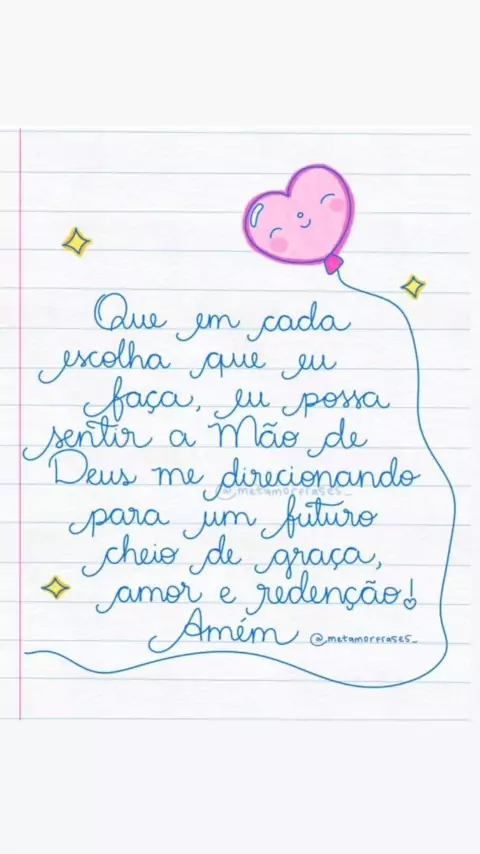 Que em cada
escolha que eu
faça, eu possa
sentir a Mão de
Deus me direcionando
@_metamorfrases_
para um futuro
cheio de graça,
amor e redenção!
Amém
@_metamorfrases_